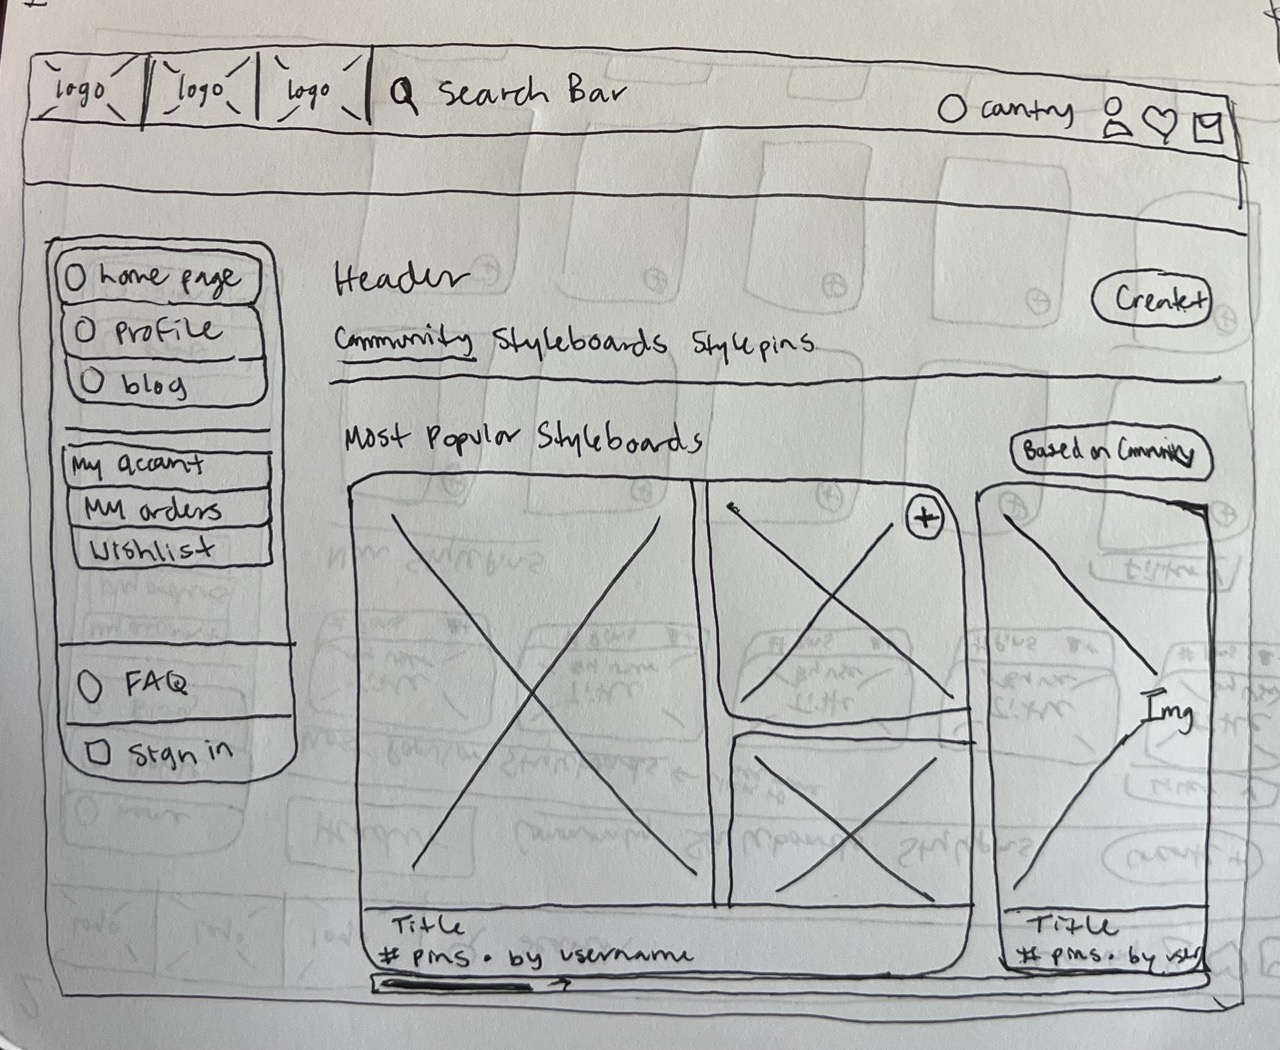 logo logo logo Search Bar country
home page
profile
blog
My account
My orders
Wishlist
FAQ
Sign in
Header
Create+
Community Styleboards Stylepins
Most Popular Styleboards
Based on Community
+
Img
Title
# pins • by username
Title
# pins • by user